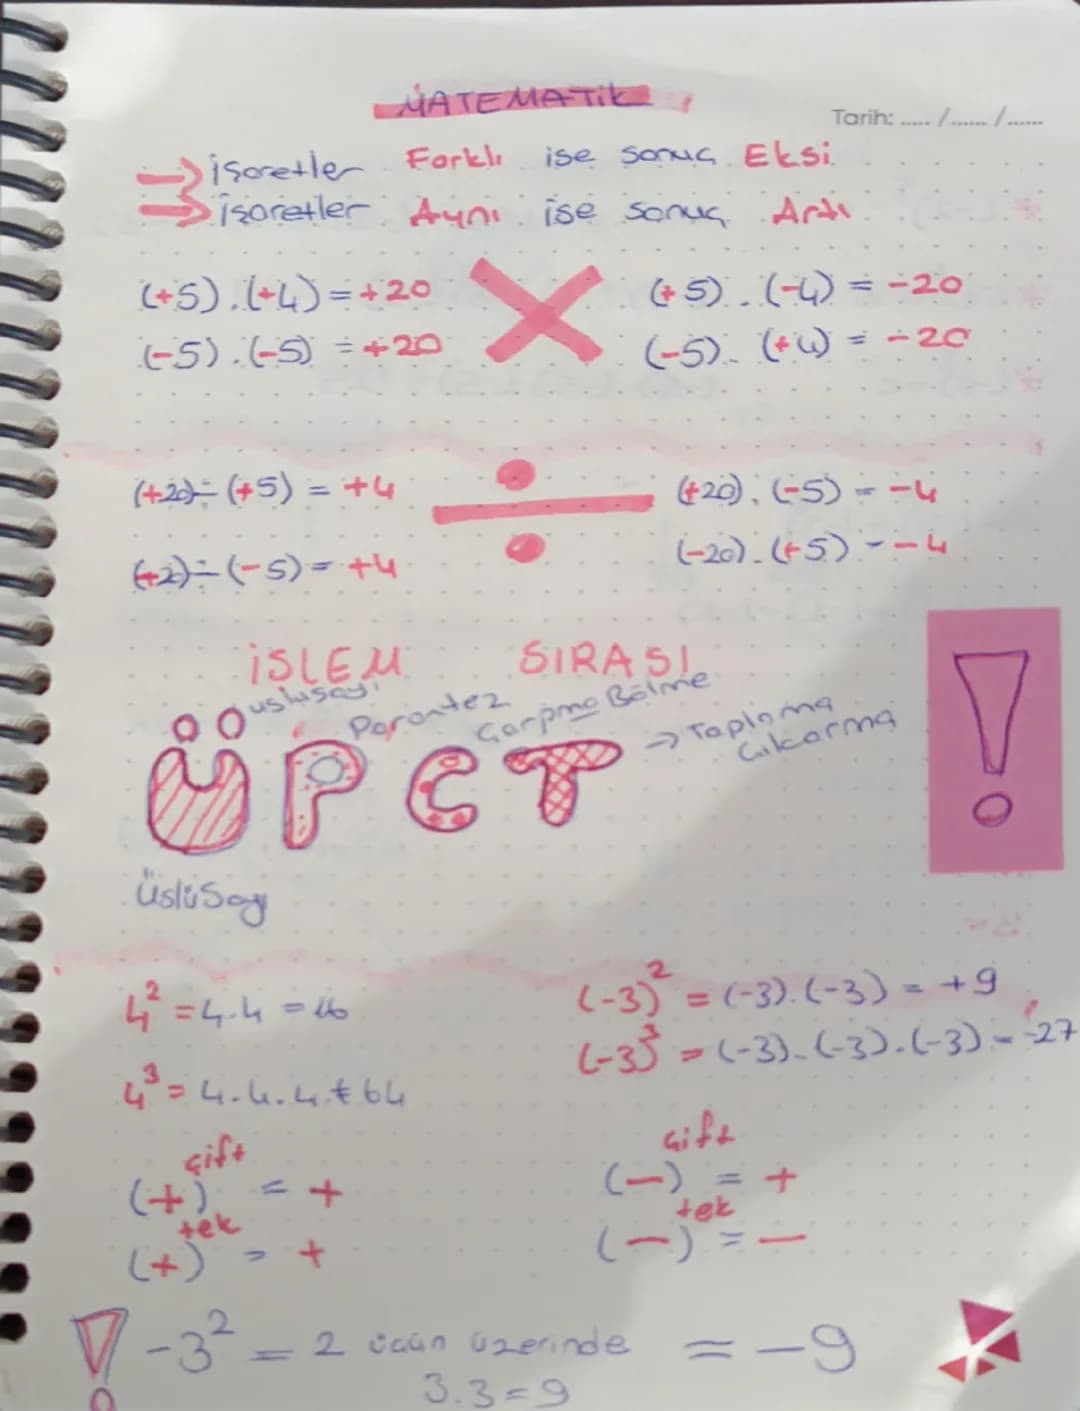 MATEMATİK
Tarih: ..... /...... /......
İşaretler Farklı ise sonuç Eksi
İşaretler Aynı ise sonuç Artı
(+5).(+4)=+20 (+5).(-4) = -20
(-5).(-5) = +20 (-5).(+4) = -20
(+20)÷(+5) = +4 (+20):(-5) = -4
(+2)÷(-5) = +4 (-20).(+5) = -4
İŞLEM SIRASI
üslüsayı Parantez Çarpma Bölme → Toplama Çıkarma
ÜPÇT
!
ÜslüSay
4² = 4.4 = 16 (-3)² = (-3).(-3) = +9
4³ = 4.4.4 = 64 (-3)³ = (-3).(-3).(-3) = -27
çift çift
(+) = + (-) = +
tek tek
(+) = + (-) = -
! -3² = 2 üçün üzerinde = -9
3.3=9